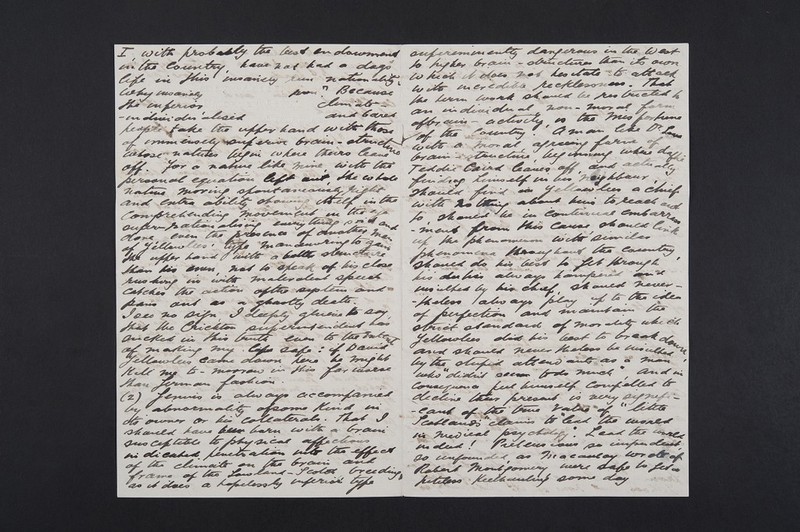 I, with probably the best endowment
in the Country, have not had a day's
life in this insanely run nationality.
Why insanely run? Because
the inferior climate
-individualised and bared
people take the upper hand with those
of immensely superior brain-structure
whose natures begin where theirs leave
off. For a nature like mine, with the
personal equation left out, the whole
nature moving spontaneously right
and extra ability showing itself in the
comprehending movement in the
super-nationalising everything said and
done, even the presence of another man
of Yellowlees' type manœuvring to gain
the upper hand with a better structure
than his own, not to speak of his close
rushing in with malevolent speech
catches the action of the system and
pains out as a ghastly death.
I see no sign, I deeply grieve to say,
that the Crichton superintendent has
in this truth even to the extent
of making my life safe: if David
Yellowlees came down here he might
kill me to-morrow in this far worse
than German fashion.
(2) Genius is always accompanied
by abnormality of some kind in
its owner or his collaterals. That I
should have been born with a brain
susceptible to physical affections
indicated penetration into the effect
of the climate on the brain and
frame of the Lowland-Scotch breeding,
as it does a hopelessly inferior type
supereminently dangerous in the West
to higher brain-structure than its own
which it does not hesitate to attack
with incredible recklessness. That
the term work should be restricted to
an individual non-moral form
of brain-activity is the misfortune
of the Country. A man like Dr
with a moral agreeing frame of
brain-structure, beginning where
Teddie Caird leaves off and actually
finding itself in his neighbour,
should find in Yellowlees a chief
with nothing about him to reach out
to, should be in continual embarrass
-ment from this cause should link
up the phenomenon with similar
phenomena throughout the Country,
should do his best to get through
his duties always hampered and
insulted by his chief, should never-
-theless always play up to the idea
of perfection and maintain the
strict standard of morality which
Yellowlees did his best to break down,
and should nevertheless be insulted
by the stupid attendants as a man
who "didn't seem to do much" and in
consequence feel himself compelled to
decline this present is very signifi-
-cant of the true value of "little
Scotland's" claims to lead the world
in medical psychology. Lead the world
indeed! Pretensions as impudent,
as unfounded, as Macaulay wrote of
Robert Montgomery were safe to get a
pitiless Keelhauling some day